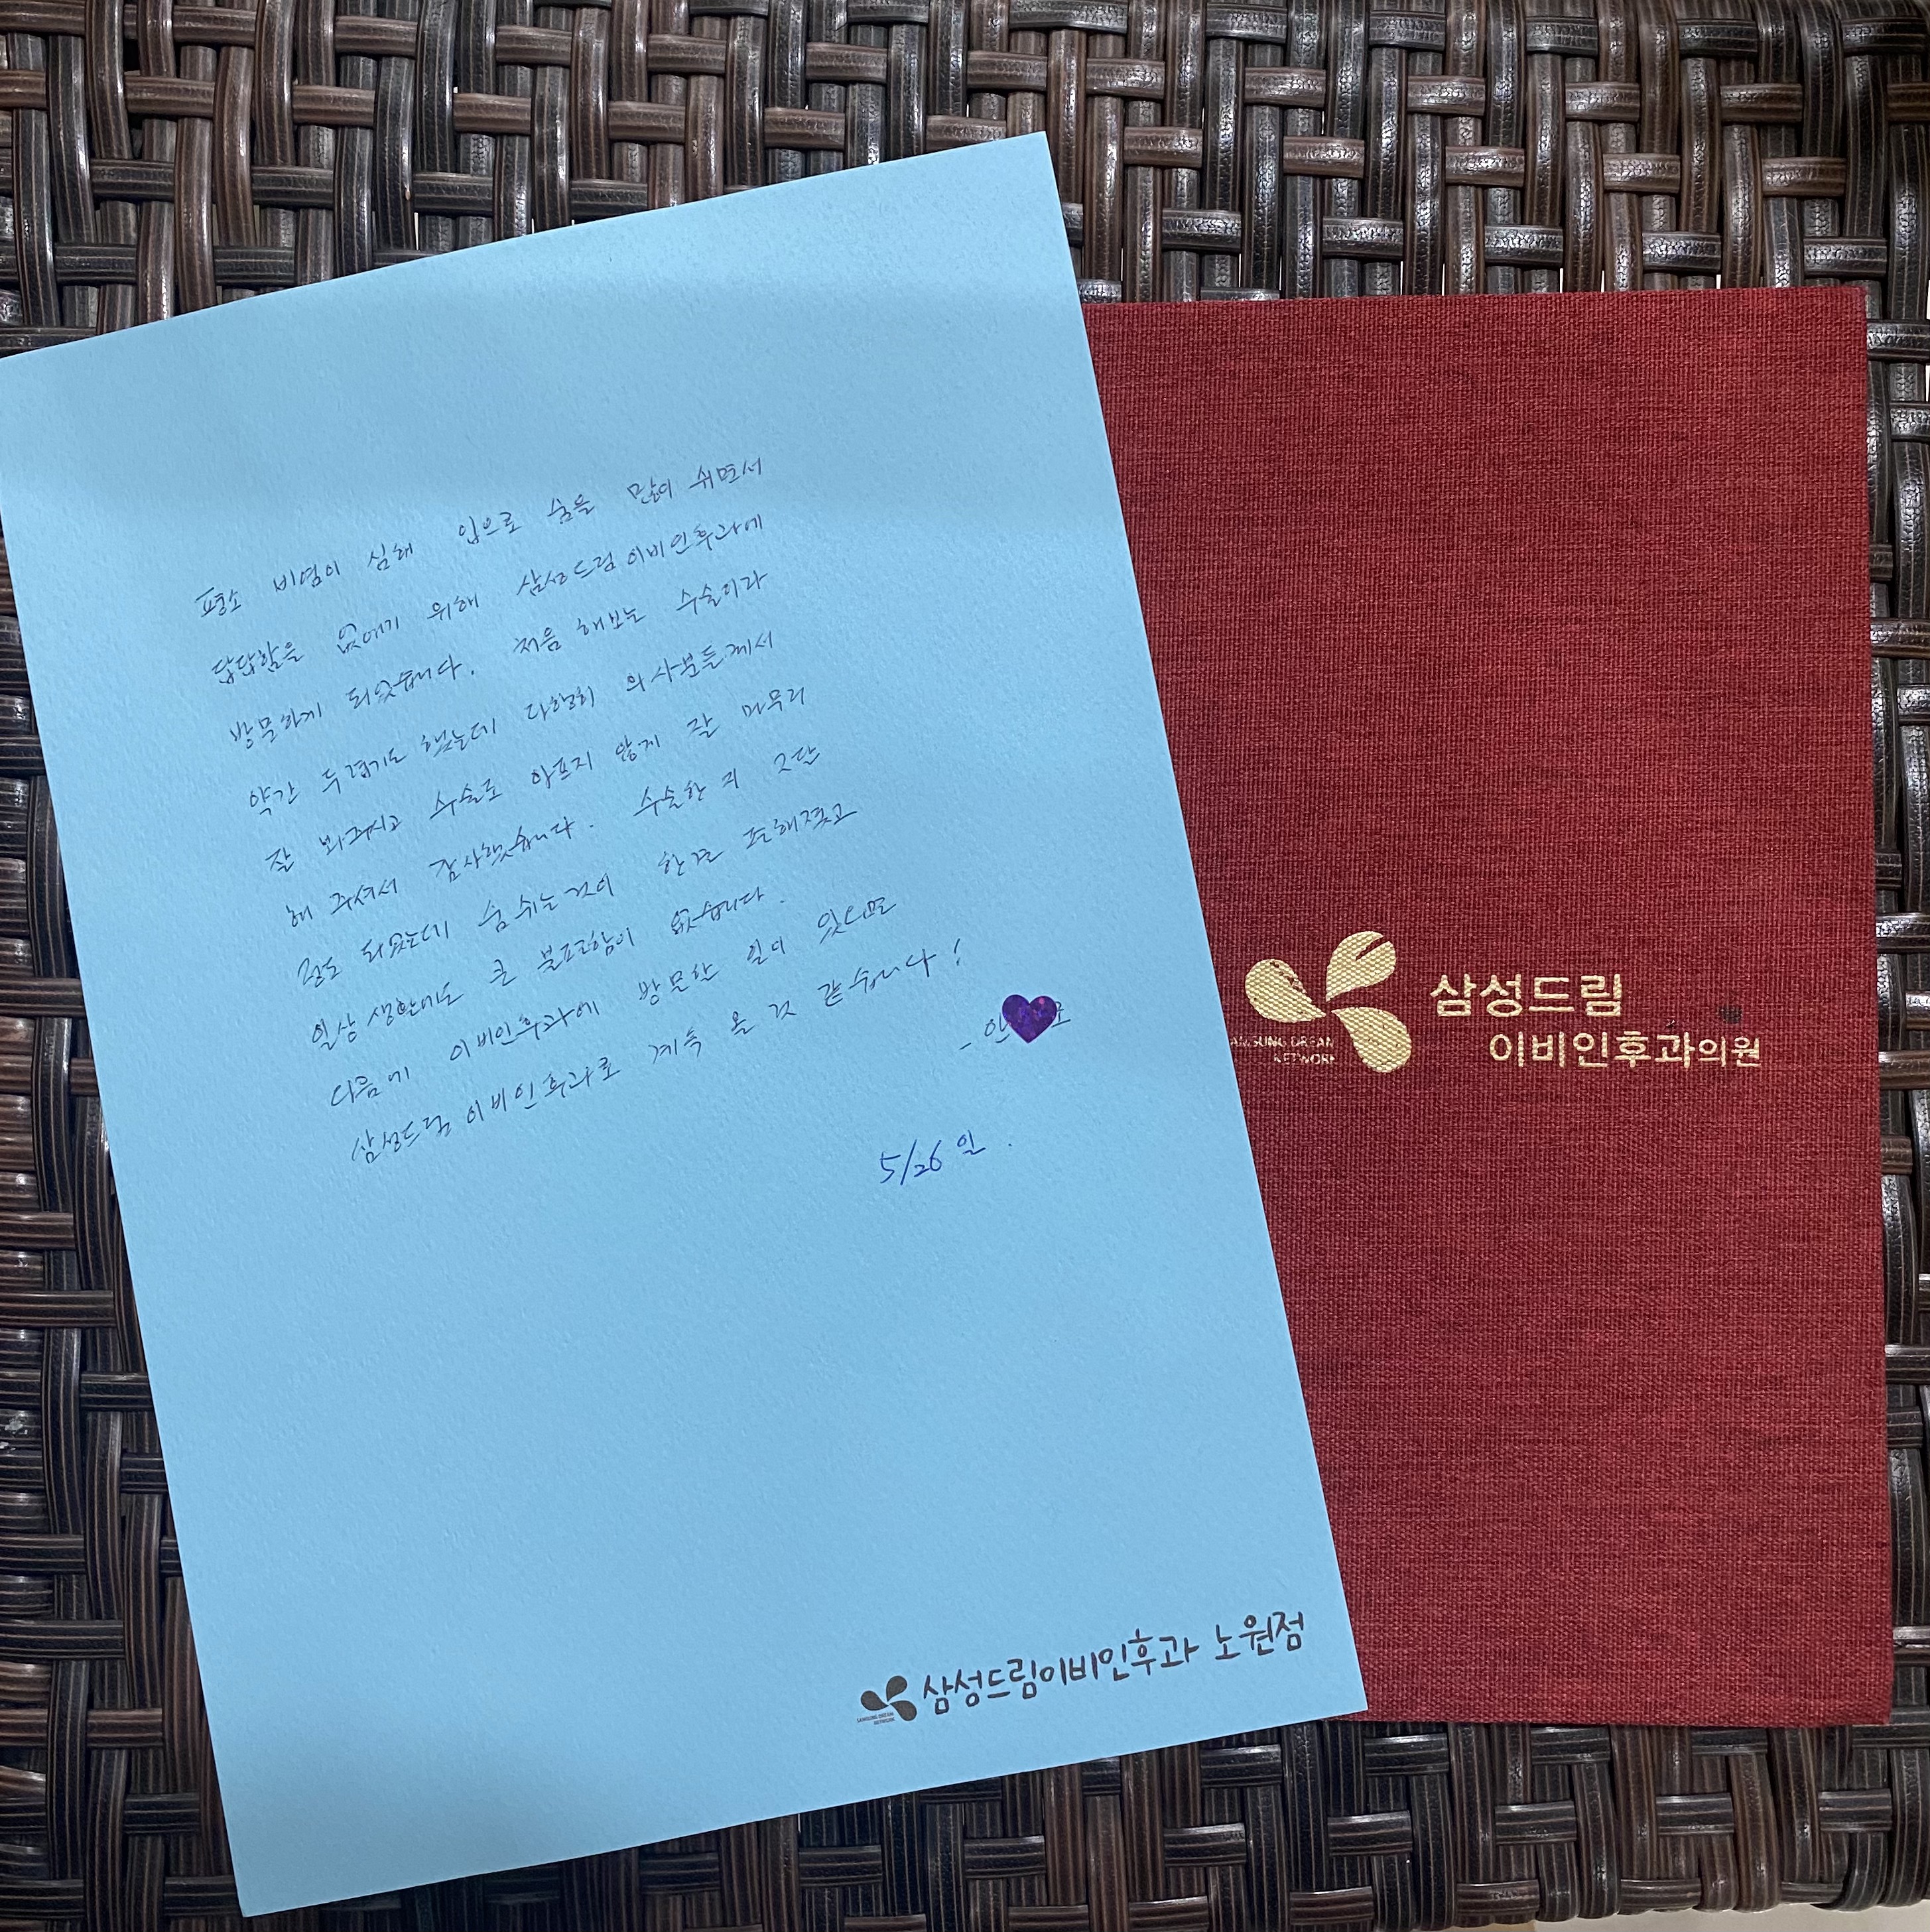 평소 비염이 심해 입으로 숨을 많이 쉬면서
답답함을 없애기 위해 삼성드림이비인후과에
방문하게 되었습니다. 처음 해보는 수술이라
약간 두렵기도 했는데 다행히 의사분들께서
잘 봐주시고 수술도 아프지 않게 잘 마무리
해 주셔서 감사했습니다. 수술한 지 2달
정도 되었는데 숨 쉬는것이 한결 편해졌고
일상 생활에도 큰 불편함이 없습니다.
다음에 이비인후과에 방문할 일이 있으면
삼성드림이비인후과로 계속 올 것 같습니다!
- 안
5/26일.
삼성드림이비인후과 노원점
SAMSUNG DREAM
NETWORK
삼성드림
이비인후과의원
SAMSUNG DREAM
NETWORK